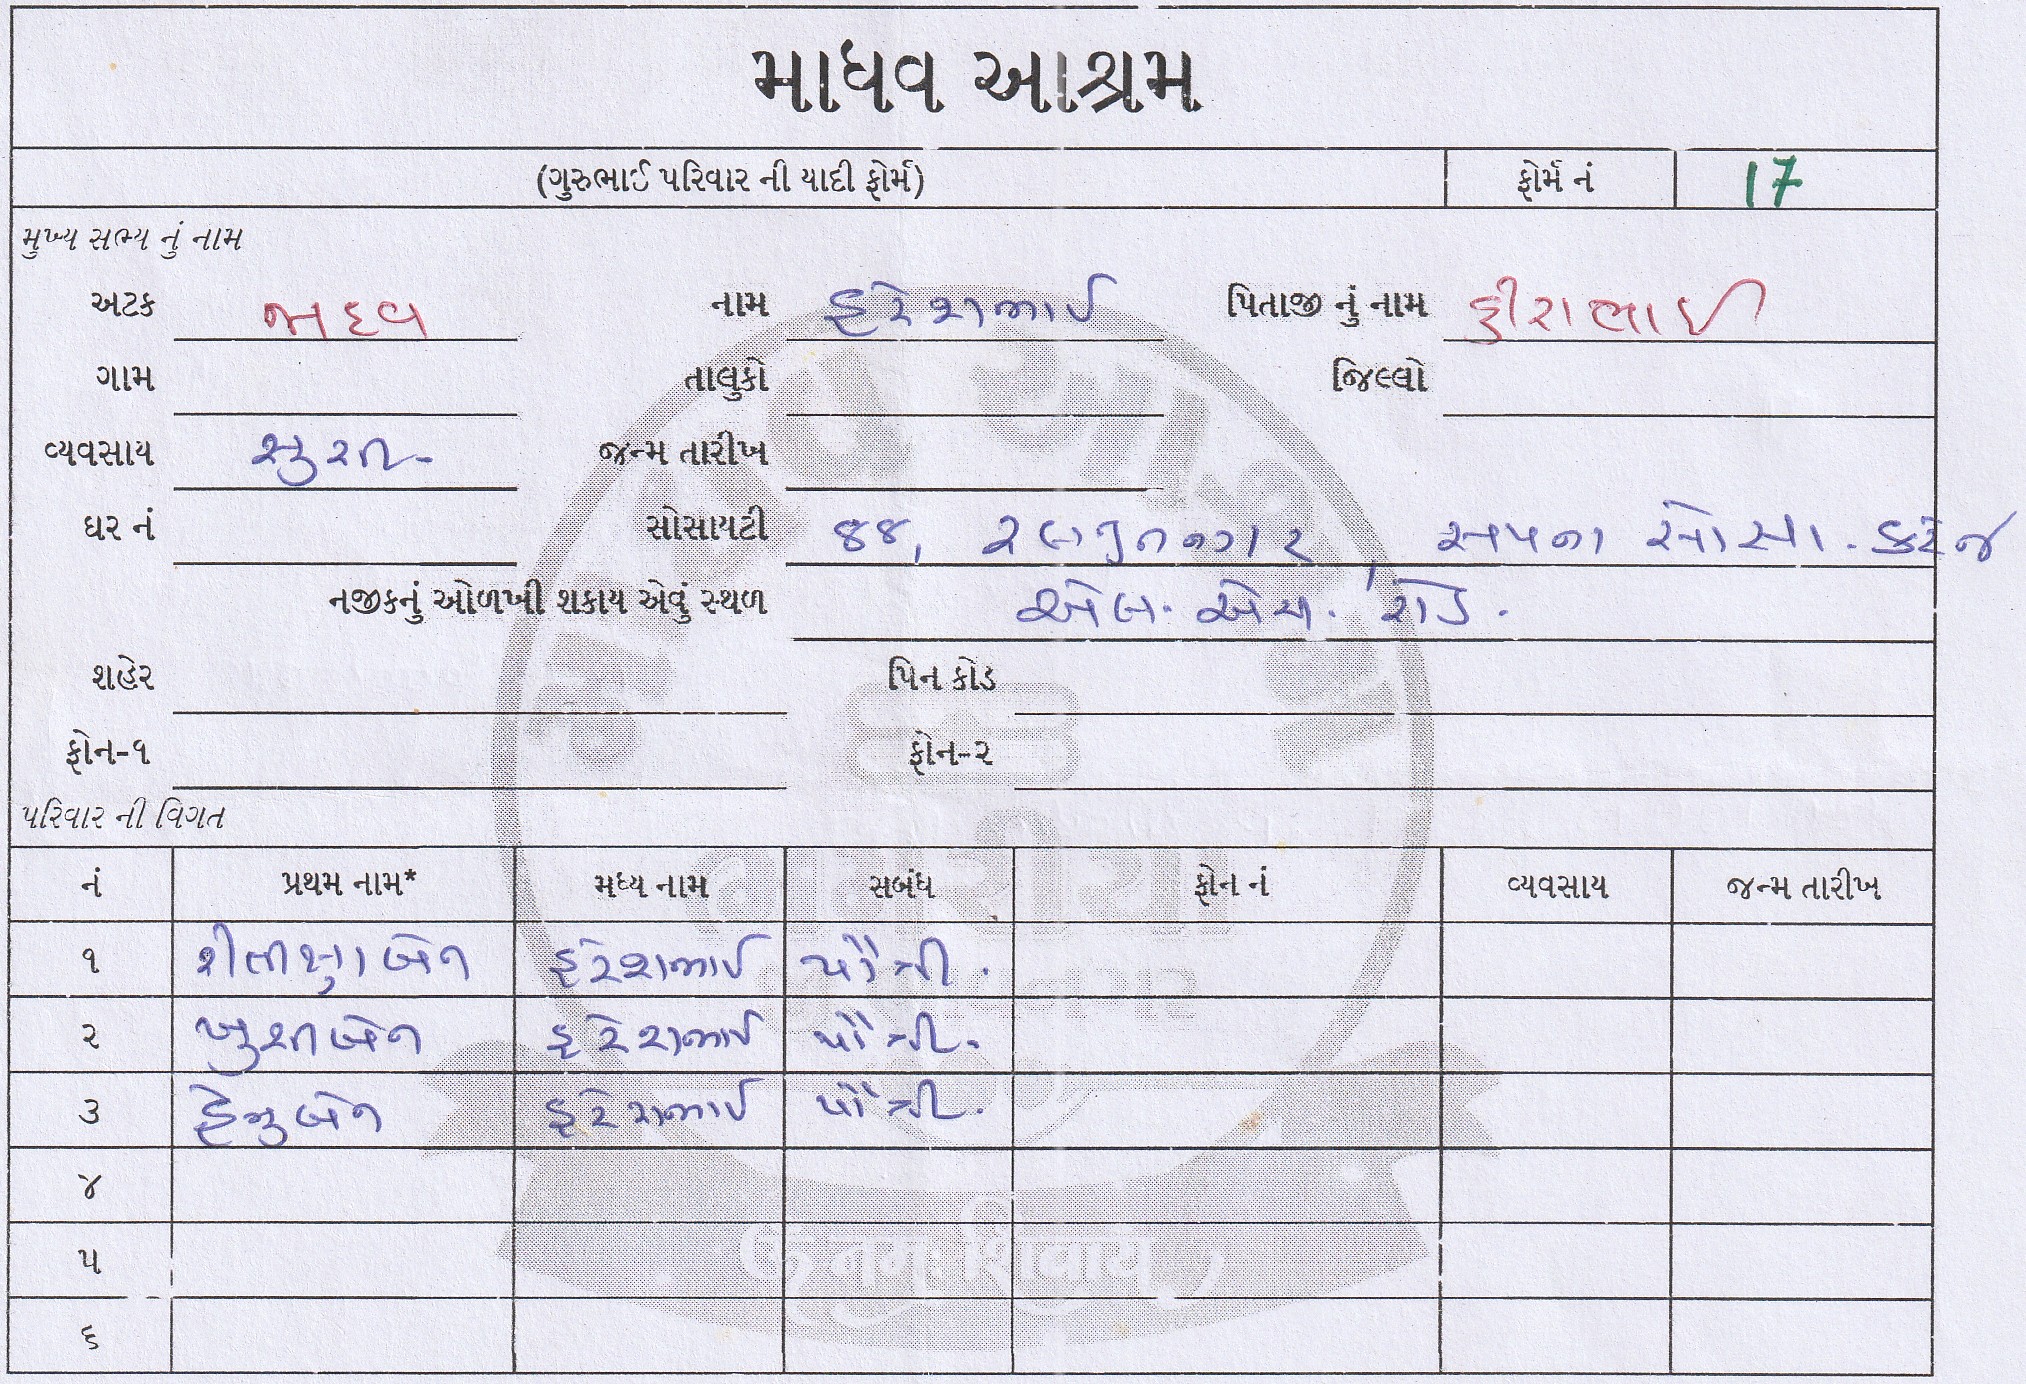 માધવ આશ્રમ
(ગુરુભાઈ પરિવાર ની યાદી ફોર્મ) ફોર્મ નં 17
મુખ્ય સભ્ય નું નામ
અટક જાદવ નામ હરેશભાઈ પિતાજી નું નામ હીરાભાઈ
ગામ તાલુકો જિલ્લો
વ્યવસાય જન્મ તારીખ
ઘર નં સોસાયટી ૪૪, નગર, સપના સોસા. કરંજ
નજીકનું ઓળખી શકાય એવું સ્થળ એલ. એચ. રોડ.
શહેર પિન કોડ
ફોન-૧ ફોન-૨
પરિવાર ની વિગત
નં પ્રથમ નામ* મધ્ય નામ સબંધ ફોન નં વ્યવસાય જન્મ તારીખ
૧ હરેશભાઈ પૌત્રી.
૨ ખુશીબેન હરેશભાઈ પૌત્રી.
૩ હરેશભાઈ પૌત્રી.
૪
૫
૬
નમઃ શિવાય